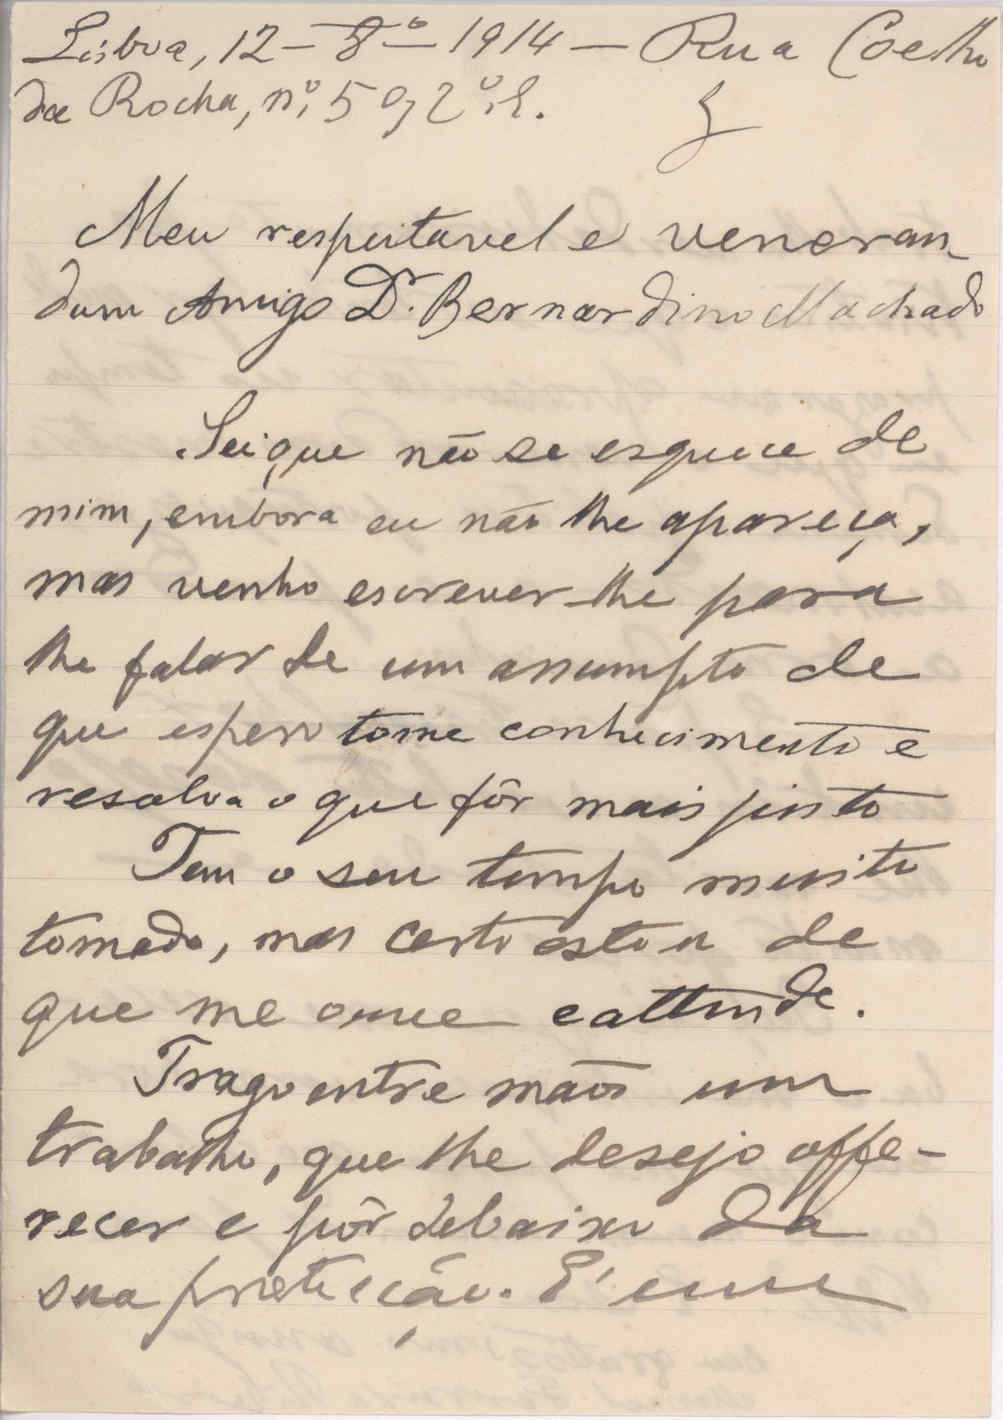 Lisboa, 12-8º-1914 - Rua Coelho
da Rocha, nº 59, 2º.E.
Meu respeitavel e veneran-
dum Amigo Dr. Bernardino Machado
Sei que não se esquece de
mim, embora eu não lhe appareça,
mas venho escrever-lhe para
lhe falar de um assumpto de
que espero tome conhecimento e
resolva o que fôr mais justo
Tem o seu tempo muito
tomado, mas certo estou de
que me ouve e attende.
Trago entre mãos um
trabalho, que lhe desejo offe-
recer e pôr debaixo da
sua protecção. E' um